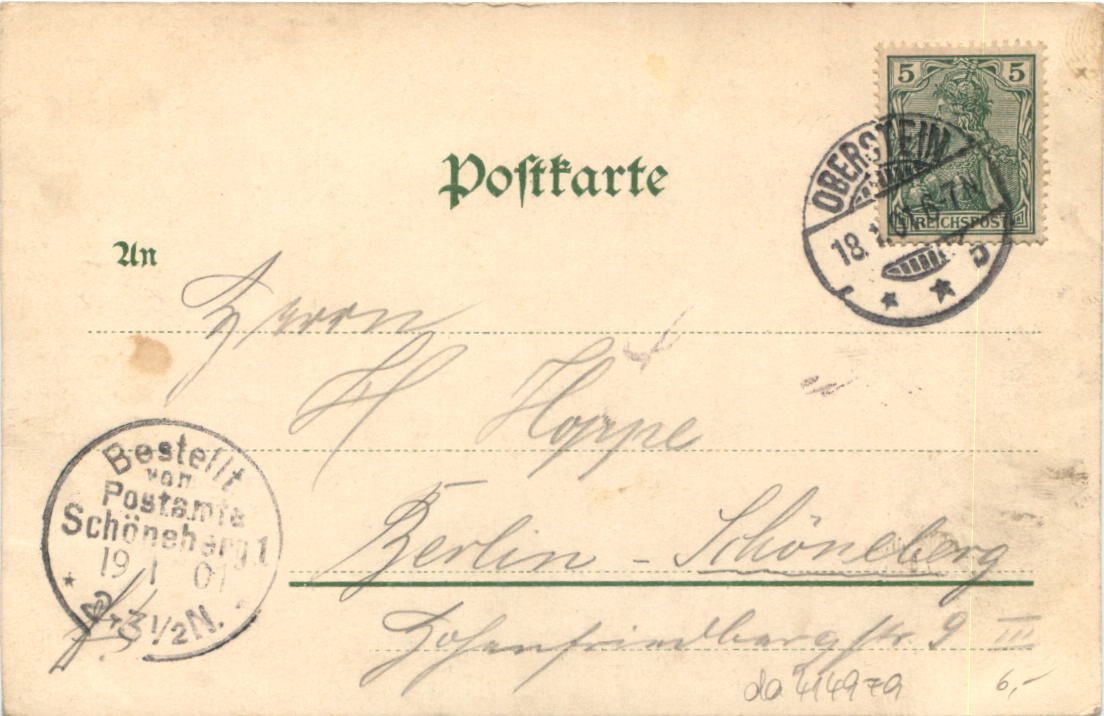 5 5
REICHSPOST
OBERSTEIN
18. 1. 01 6-7N
Postkarte
An
Herrn
H Hoppe
Berlin - Schöneberg
Hohenfriedbergstr. 9 III
Bestellt
vom
Postamte
Schöneberg 1
19 1 01
2-3 1/2 N.
6,-